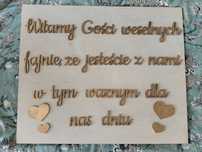 Witamy Gości weselnych
fajnie, że jesteście z nami
w tym ważnym dla
nas dniu